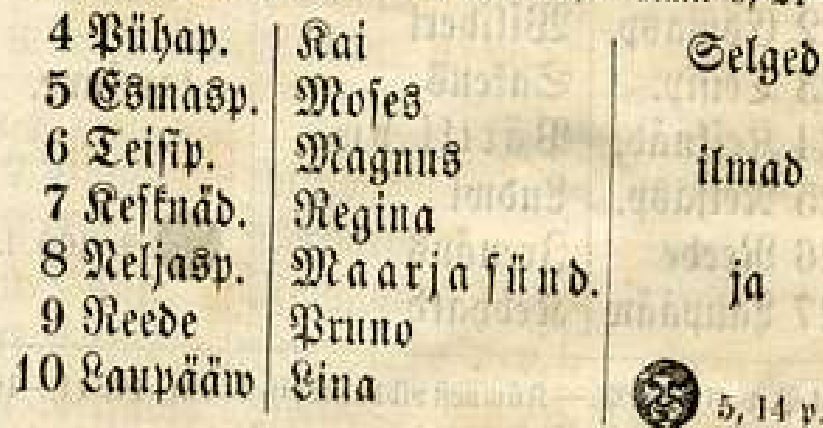 4 Pühap. Kai Selged
5 Esmasp. Moses
6 Teisip. Magnus ilmad
7 Kesknäd. Regina
8 Neljasp. Maarja sünd. ja
9 Reede Pruno
10 Laupääw Lina 5, 14 p.